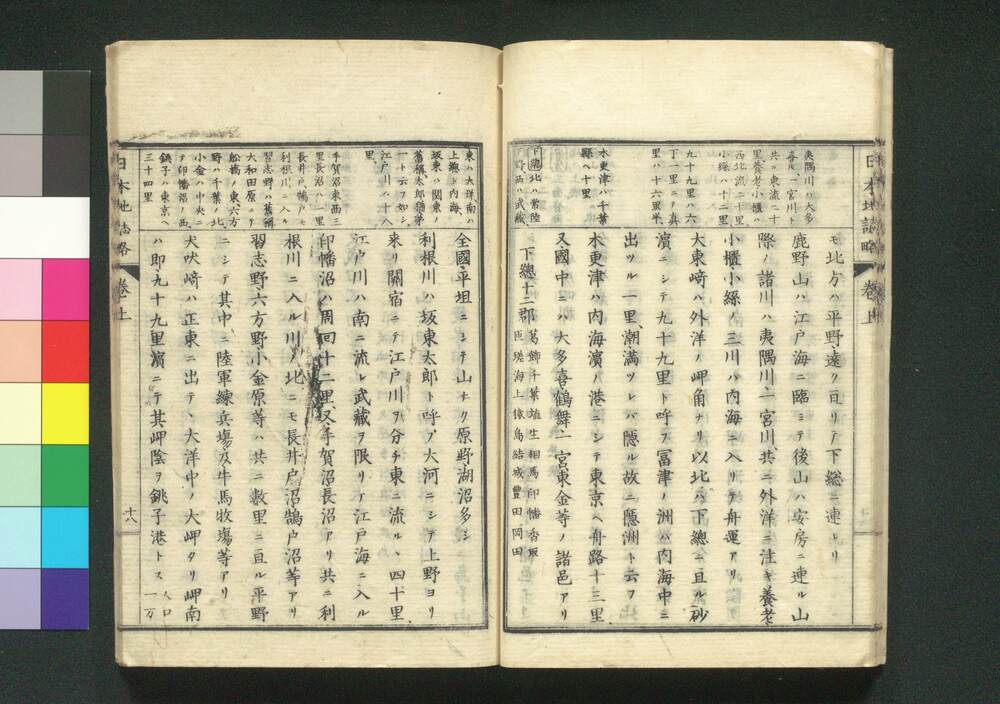 日本地誌略 卷上
夷隅川ハ大多
喜ヲ一宮川ト
共ニ東流二十
里養老小櫃ハ
西北流二十里
小絲ハ十二里
九十九里ハ六
丁一里ニテ真
里ハ十六里半
木更津ハ千葉
縣ヘ十里
下總北ハ常陸
下野西ハ武藏
モ北方ハ平野遠ク亘リテ下總ニ連レリ
鹿野山ハ江戸海ニ臨ミテ後山ハ安房ニ連ル山
際ノ諸川ハ夷隅川一宮川共ニ外洋ニ注キ養老
小櫃小絲ノ三川ハ内海ニ入リテ舟運アリ
大東崎ハ外洋ノ岬角ナリ以北ハ下總ニ亘ル砂
濱ニシテ九十九里ト呼フ冨津ノ洲ハ内海中ニ
出ツル一里潮満ツレバ隱ル故ニ隱洲ト云フ
木更津ハ内海濱ノ港ニシテ東京ヘ舟路十三里
又國中ニハ大多喜鶴舞一宮東金等ノ諸邑アリ
下總十二郡 葛餝千葉埴生相馬印幡香取
匝瑳海上猿島結城豐田岡田
東ハ大洋南ハ
上總ト内海
坂東ハ関東
舊稱太郎猶第
一ト云フ如シ
江戸川ハ十八
里
手賀沼東西三
里長沼ハ一里
長井戸鵠戸モ
利根川ニ入ル
習志野ハ舊稱
大和田原ナリ
船橋ノ東六方
野ハ千葉ノ北
小金ハ中央ニ
テ印幡沼ノ西
銚子ハ東京ヘ
三十四里
全國平坦ニシテ山ナク原野湖沼多シ
利根川ハ坂東太郎ト呼ブ大河ニシテ上野ヨリ
来リ關宿ニテ江戸川ヲ分チ東ニ流ルヽ四十里
江戸川ハ南ニ流レ武藏ヲ限リテ江戸海ニ入ル
印幡沼ハ周回十二里又手賀沼長沼アリ共ニ利
根川ニ入ル川ノ北ニモ長井戸沼鵠戸沼等アリ
習志野六方野小金原等ハ共ニ數里ニ亘ル平野
ニシテ其中ニ陸軍練兵場及牛馬牧場等アリ
犬吠崎ハ正東ニ出テヽ大洋中ノ大岬タリ岬南
ハ即九十九里濱ニテ其岬陰ヲ銚子港トス 人口
一万
日本地誌略 卷上 十八